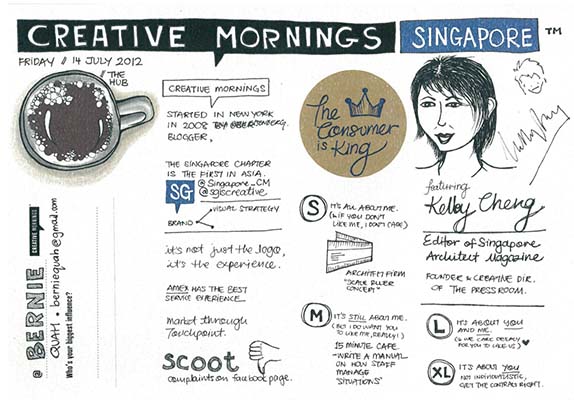 CREATIVE MORNINGS SINGAPORE ™
FRIDAY // 14 JULY 2012
// THE
HUB
CREATIVE MORNINGS
STARTED IN NEW YORK
IN 2008
BLOGGER.
THE SINGAPORE CHAPTER
IS THE FIRST IN ASIA.
SG @Singapore_CM
@sgiscreative
VISUAL STRATEGY
BRAND
it's not just the logo,
it's the experience.
AMEX HAS THE BEST
SERVICE EXPERIENCE.
market through
Touchpoint.
scoot
complaints on facebook page.
@ BERNIE
QUAH • berniequah@gmail.com
CREATIVE MORNINGS
Who's your biggest influence?
The
Consumer
is King
S IT'S ALL ABOUT ME.
(& IF YOU DON'T
LIKE ME, I DON'T CARE)
ARCHITECT FIRM
"SCALE RULER
CONCEPT"
M IT'S STILL ABOUT ME.
(BUT I DO WANT YOU
TO LIKE ME, REALLY!)
15 MINUTE CAFE
- WRITE A MANUAL
ON HOW STAFF
MANAGE
"SITUATIONS"
featuring
Kelley Cheng
Editor of Singapore
Architect Magazine
FOUNDER & CREATIVE DIR.
OF THE PRESS ROOM.
L IT'S ABOUT YOU
AND ME.
(& WE CARE DEEPLY
FOR YOU TO LIKE US)
XL IT'S ABOUT YOU
NOT INDIVIDUALISTIC,
GET THE CONTRACT RIGHT.